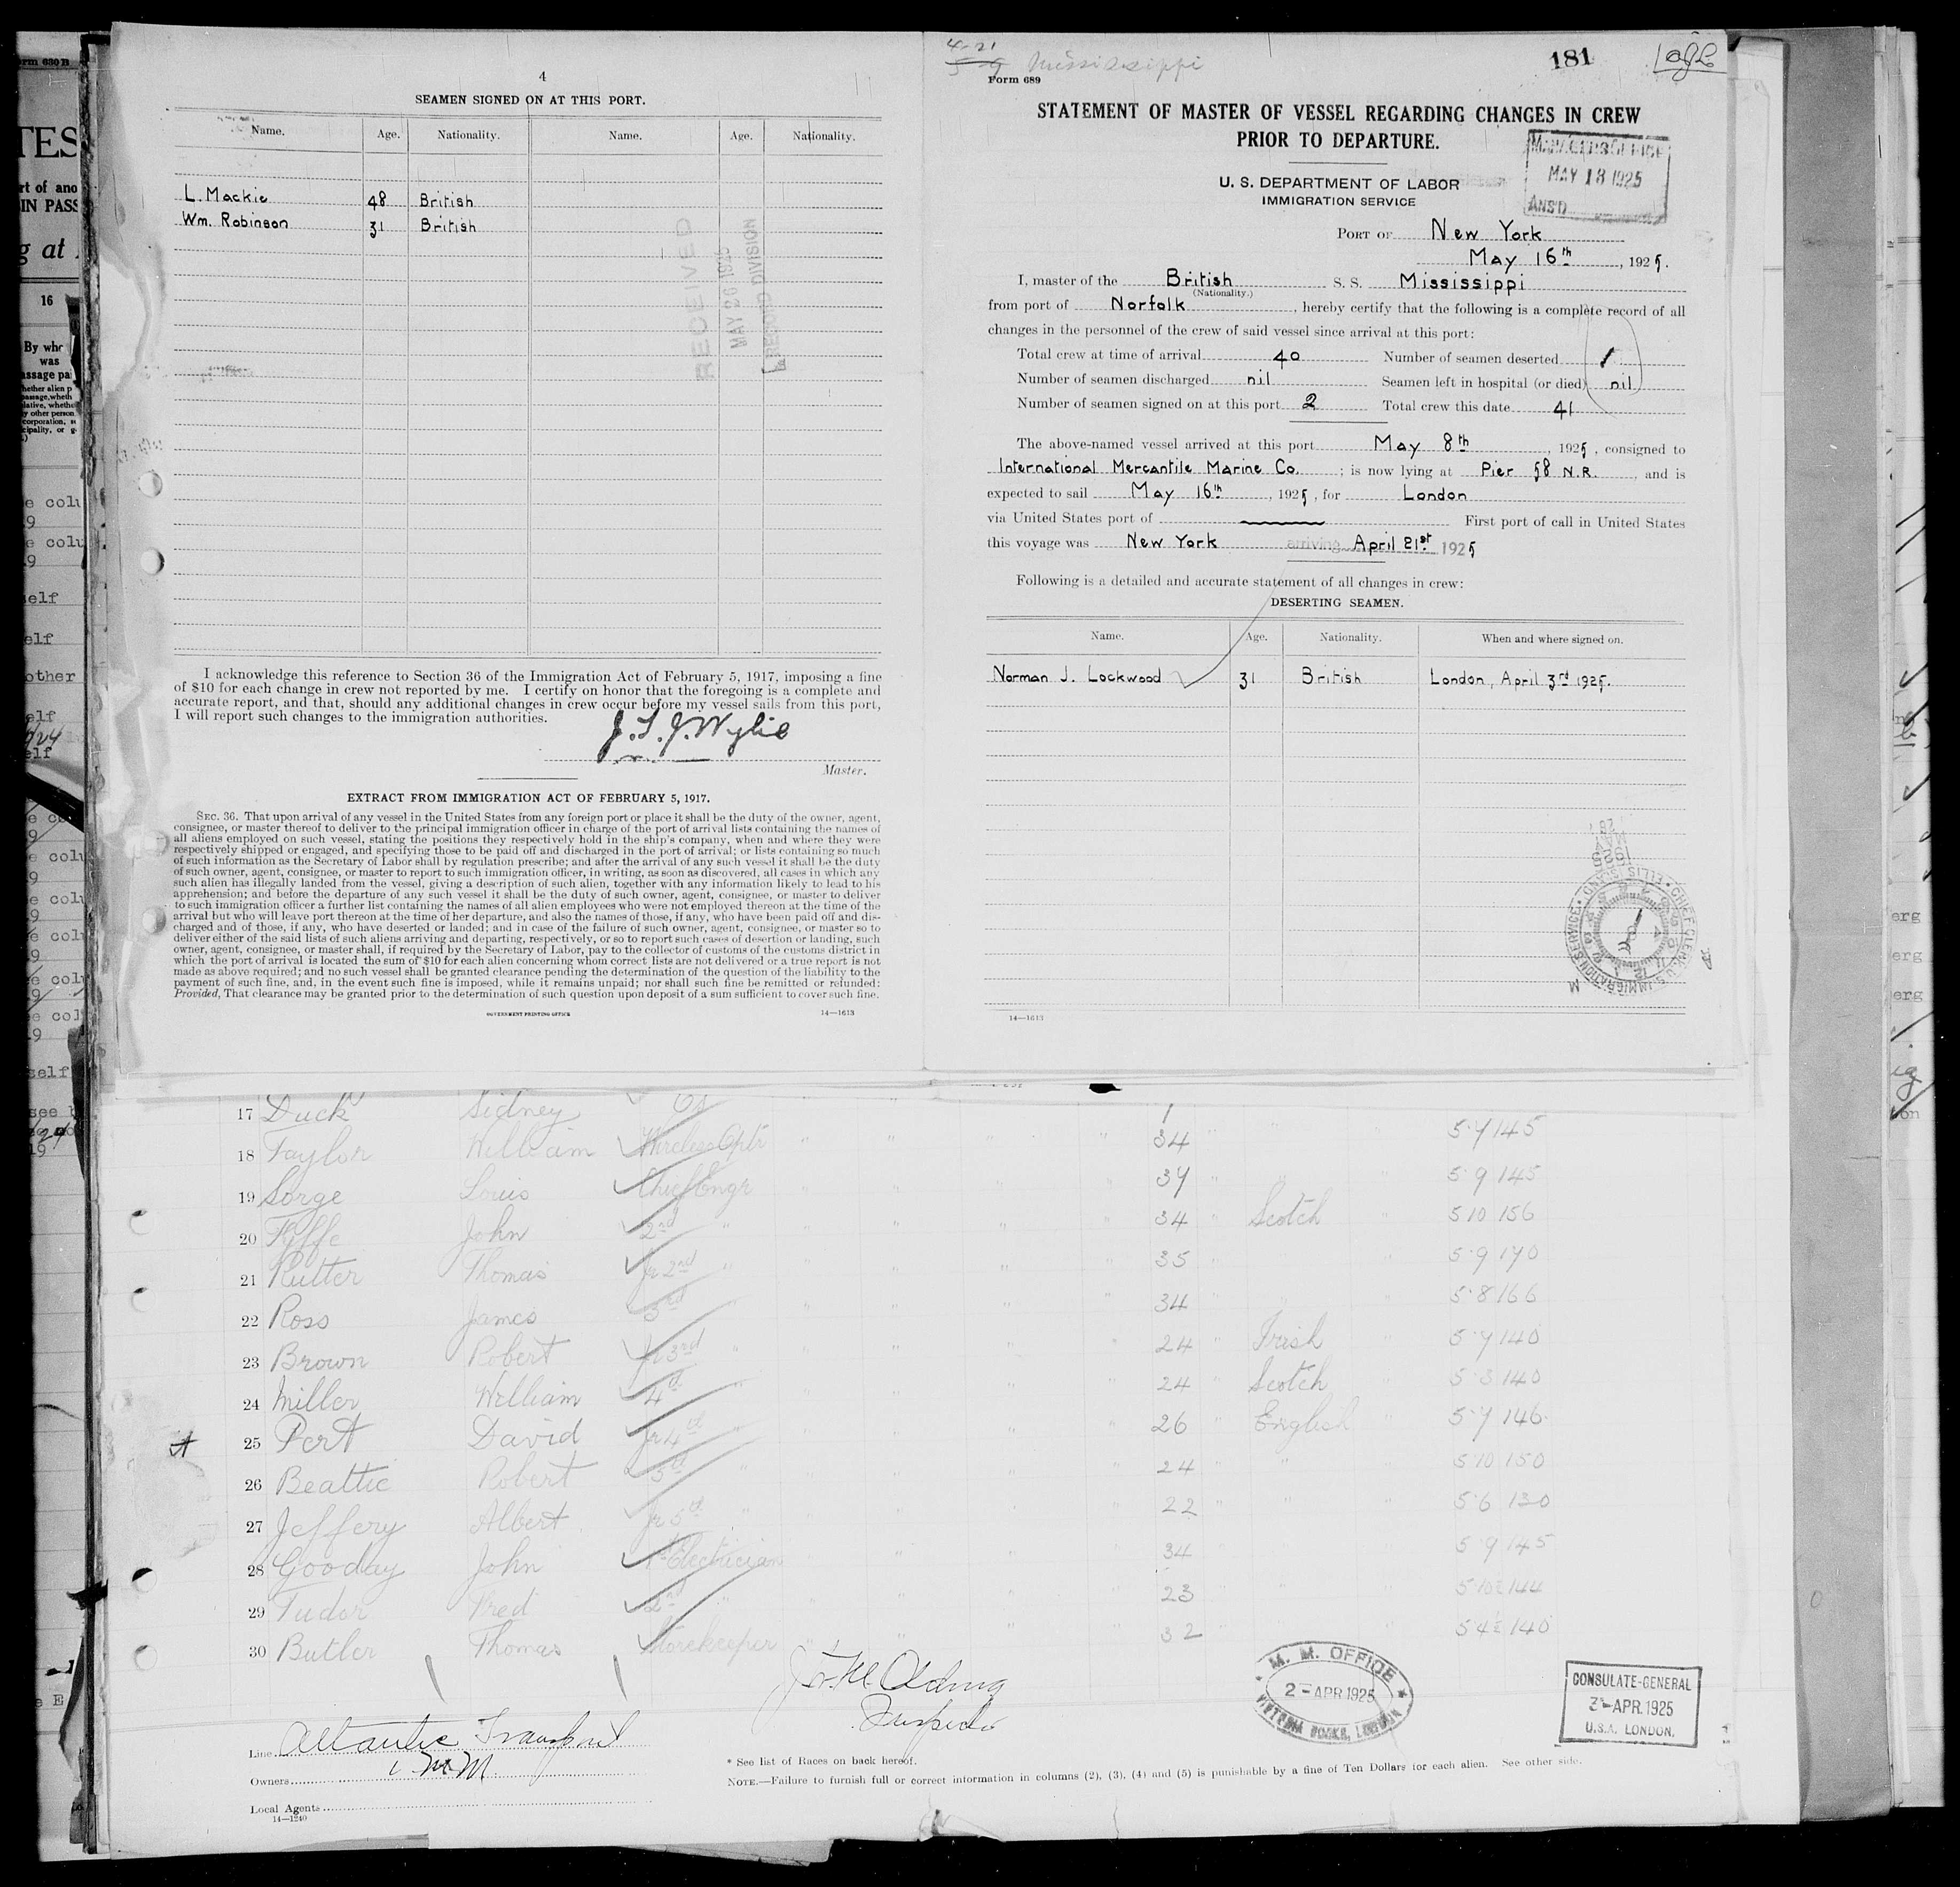 4
SEAMEN SIGNED ON AT THIS PORT.
Name. Age. Nationality. Name. Age. Nationality.
L. Mackie 48 British
Wm. Robinson 31 British
RECEIVED
MAY 26 1925
RECORD DIVISION
I acknowledge this reference to Section 36 of the Immigration Act of February 5, 1917, imposing a fine
of $10 for each change in crew not reported by me. I certify on honor that the foregoing is a complete and
accurate report, and that, should any additional changes in crew occur before my vessel sails from this port,
I will report such changes to the immigration authorities.
Wylie
Master.
EXTRACT FROM IMMIGRATION ACT OF FEBRUARY 5, 1917.
SEC. 36. That upon arrival of any vessel in the United States from any foreign port or place it shall be the duty of the owner, agent,
consignee, or master thereof to deliver to the principal immigration officer in charge of the port of arrival lists containing the names of
all aliens employed on such vessel, stating the positions they respectively hold in the ship's company, when and where they were
respectively shipped or engaged, and specifying those to be paid off and discharged in the port of arrival; or lists containing so much
of such information as the Secretary of Labor shall by regulation prescribe; and after the arrival of any such vessel it shall be the duty
of such owner, agent, consignee, or master to report to such immigration officer, in writing, as soon as discovered, all cases in which any
such alien has illegally landed from the vessel, giving a description of such alien, together with any information likely to lead to his
apprehension; and before the departure of any such vessel it shall be the duty of such owner, agent, consignee, or master to deliver
to such immigration officer a further list containing the names of all alien employees who were not employed thereon at the time of the
arrival but who will leave port thereon at the time of her departure, and also the names of those, if any, who have been paid off and dis-
charged and of those, if any, who have deserted or landed; and in case of the failure of such owner, agent, consignee, or master so to
deliver either of the said lists of such aliens arriving and departing, respectively, or so to report such cases of desertion or landing, such
owner, agent, consignee, or master shall, if required by the Secretary of Labor, pay to the collector of customs of the customs district in
which the port of arrival is located the sum of $10 for each alien concerning whom correct lists are not delivered or a true report is not
made as above required; and no such vessel shall be granted clearance pending the determination of the question of the liability to the
payment of such fine, and, in the event such fine is imposed, while it remains unpaid; nor shall such fine be remitted or refunded:
Provided, That clearance may be granted prior to the determination of such question upon deposit of a sum sufficient to cover such fine.
GOVERNMENT PRINTING OFFICE 14—1613
4-21
Mississippi
181
Form 689
STATEMENT OF MASTER OF VESSEL REGARDING CHANGES IN CREW
PRIOR TO DEPARTURE.
MAY 18 1925
ANS'D
U. S. DEPARTMENT OF LABOR
IMMIGRATION SERVICE
PORT OF New York
May 16th, 1925.
I, master of the British S. S. Mississippi
(Nationality.)
from port of Norfolk, hereby certify that the following is a complete record of all
changes in the personnel of the crew of said vessel since arrival at this port:
Total crew at time of arrival 40 Number of seamen deserted 1
Number of seamen discharged nil Seamen left in hospital (or died) nil
Number of seamen signed on at this port 2 Total crew this date 41
The above-named vessel arrived at this port May 8th, 1925, consigned to
International Mercantile Marine Co.; is now lying at Pier 58 N.R., and is
expected to sail May 16th, 1925, for London
via United States port of First port of call in United States
this voyage was New York arriving April 21st 1925
Following is a detailed and accurate statement of all changes in crew:
DESERTING SEAMEN.
Name. Age. Nationality. When and where signed on.
Norman J. Lockwood 31 British London, April 3rd 1925.
14—1613
17 Duck Sidney
18 Taylor William Wireless Optr 34 5 7 145
19 Sorge Louis Chief Engr 37 5 9 145
20 Fyffe John 2nd " 34 Scotch 5 10 156
21 Rutter Thomas Jr 2nd " 35 5 9 170
22 Ross James 3rd " 34 5 8 166
23 Brown Robert Jr 3rd " 24 Irish 5 7 140
24 Miller William 4th " 24 Scotch 5 8 140
25 Pert David Jr 4th 26 English 5 7 146
26 Beattie Robert 5th " 24 " 5 10 150
27 Jeffery Albert Jr 5th " 22 " 5 6 130
28 Gooday John 1st Electrician 34 5 9 145
29 Tudor Fred 2nd " 23 144
30 Butler Thomas Storekeeper 32 5 4½ 140
M. M. OFFICE
2-APR 1925
VICTORIA DOCKS, LONDON
CONSULATE-GENERAL
3-APR.1925
U.S.A. LONDON.
Line Atlantic Transport
Owners
Local Agents
14—1240
* See list of Races on back hereof.
NOTE.—Failure to furnish full or correct information in columns (2), (3), (4) and (5) is punishable by a fine of Ten Dollars for each alien. See other side.